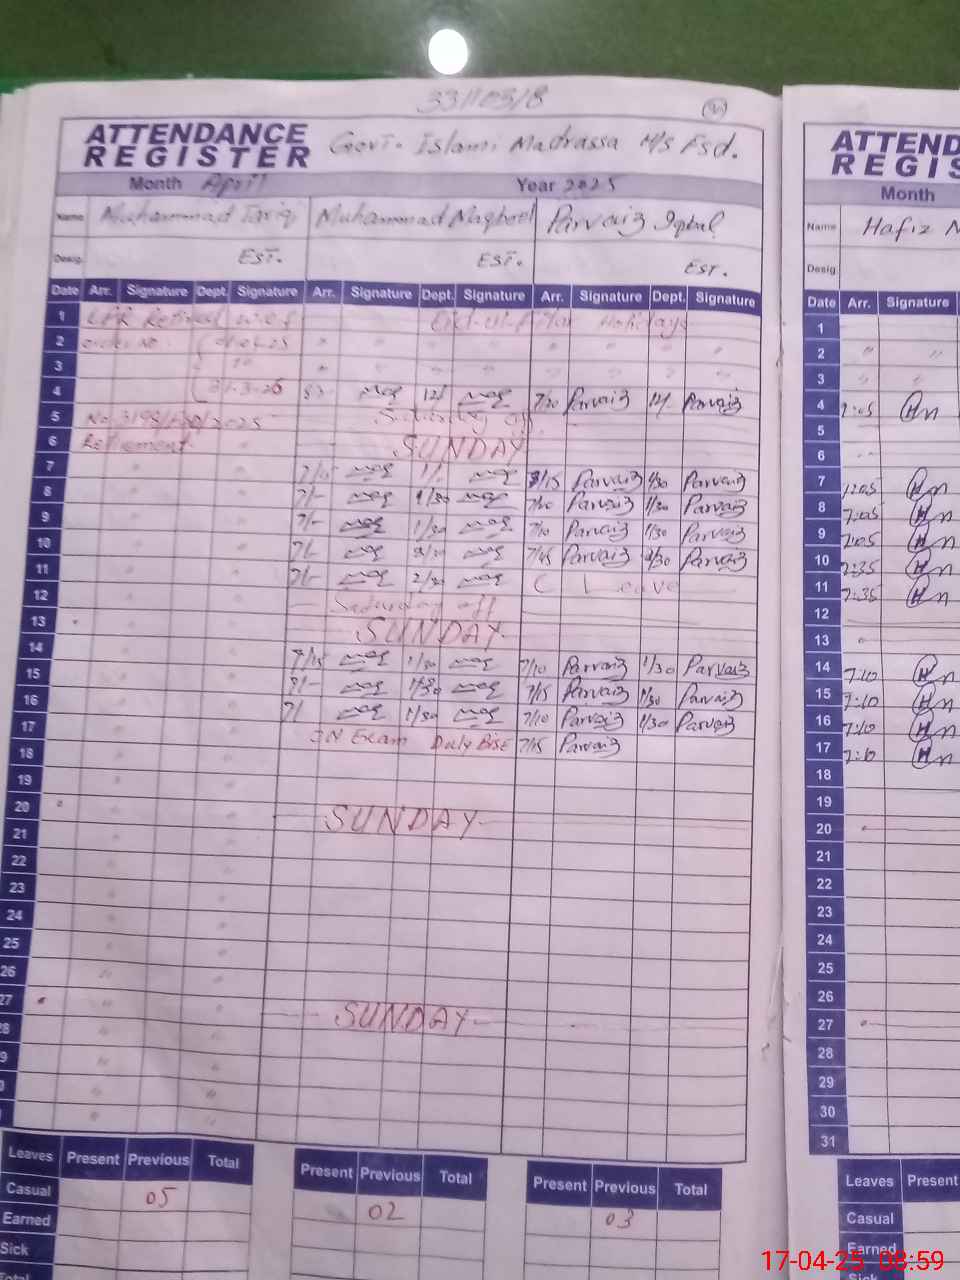 33110318
ATTENDANCE
REGISTER
Govt. Islami Madrassa H/S Fsd.
Month April Year 2025
Name Muhammad Tariq Muhammad Maqbool Parvaiz Iqbal
Desig. EST. EST. EST.
Date Arr. Signature Dept. Signature Arr. Signature Dept. Signature Arr. Signature Dept. Signature
1 LPR Retired w.e.f Eid-ul-Fitar Holidays
2 order No.
3
4 7/20 Parvaiz 12/- Parvaiz
5 Saturday off
6 Retirement SUNDAY
7 7/15 Parvaiz 1/30 Parvaiz
8 7/- 1/30 7/20 Parvaiz 1/30 Parvaiz
9 7/- 1/30 7/10 Parvaiz 1/30 Parvaiz
10 7/- 7/45 Parvaiz 2/30 Parvaiz
11 7/- 2/30 C Leave
12 Saturday off
13 SUNDAY
14 7/15 1/30 7/10 Parvaiz 1/30 Parvaiz
15 7/- 1/30 7/15 Parvaiz 1/30 Parvaiz
16 7/- 1/30 7/10 Parvaiz 1/30 Parvaiz
17 IN Exam Duty Bise 7/15 Parvaiz
18
19
20 SUNDAY
21
22
23
24
25
26
27 SUNDAY
28
9
Leaves Present Previous Total Present Previous Total Present Previous Total
Casual 05 02 03
Earned
Sick
Total
ATTEND
REGIS
Month
Name Hafiz
Desig.
Date Arr. Signature
1
2
3
4 7:05
5
6
7 7:05
8 7:05
9 7:05
10 7:35
11 7:35
12
13
14 7:10
15 7:10
16 7:10
17 7:10
18
19
20
21
22
23
24
25
26
27
28
29
30
31
Leaves Present
Casual
Earned
Sick
17-04-25 08:59